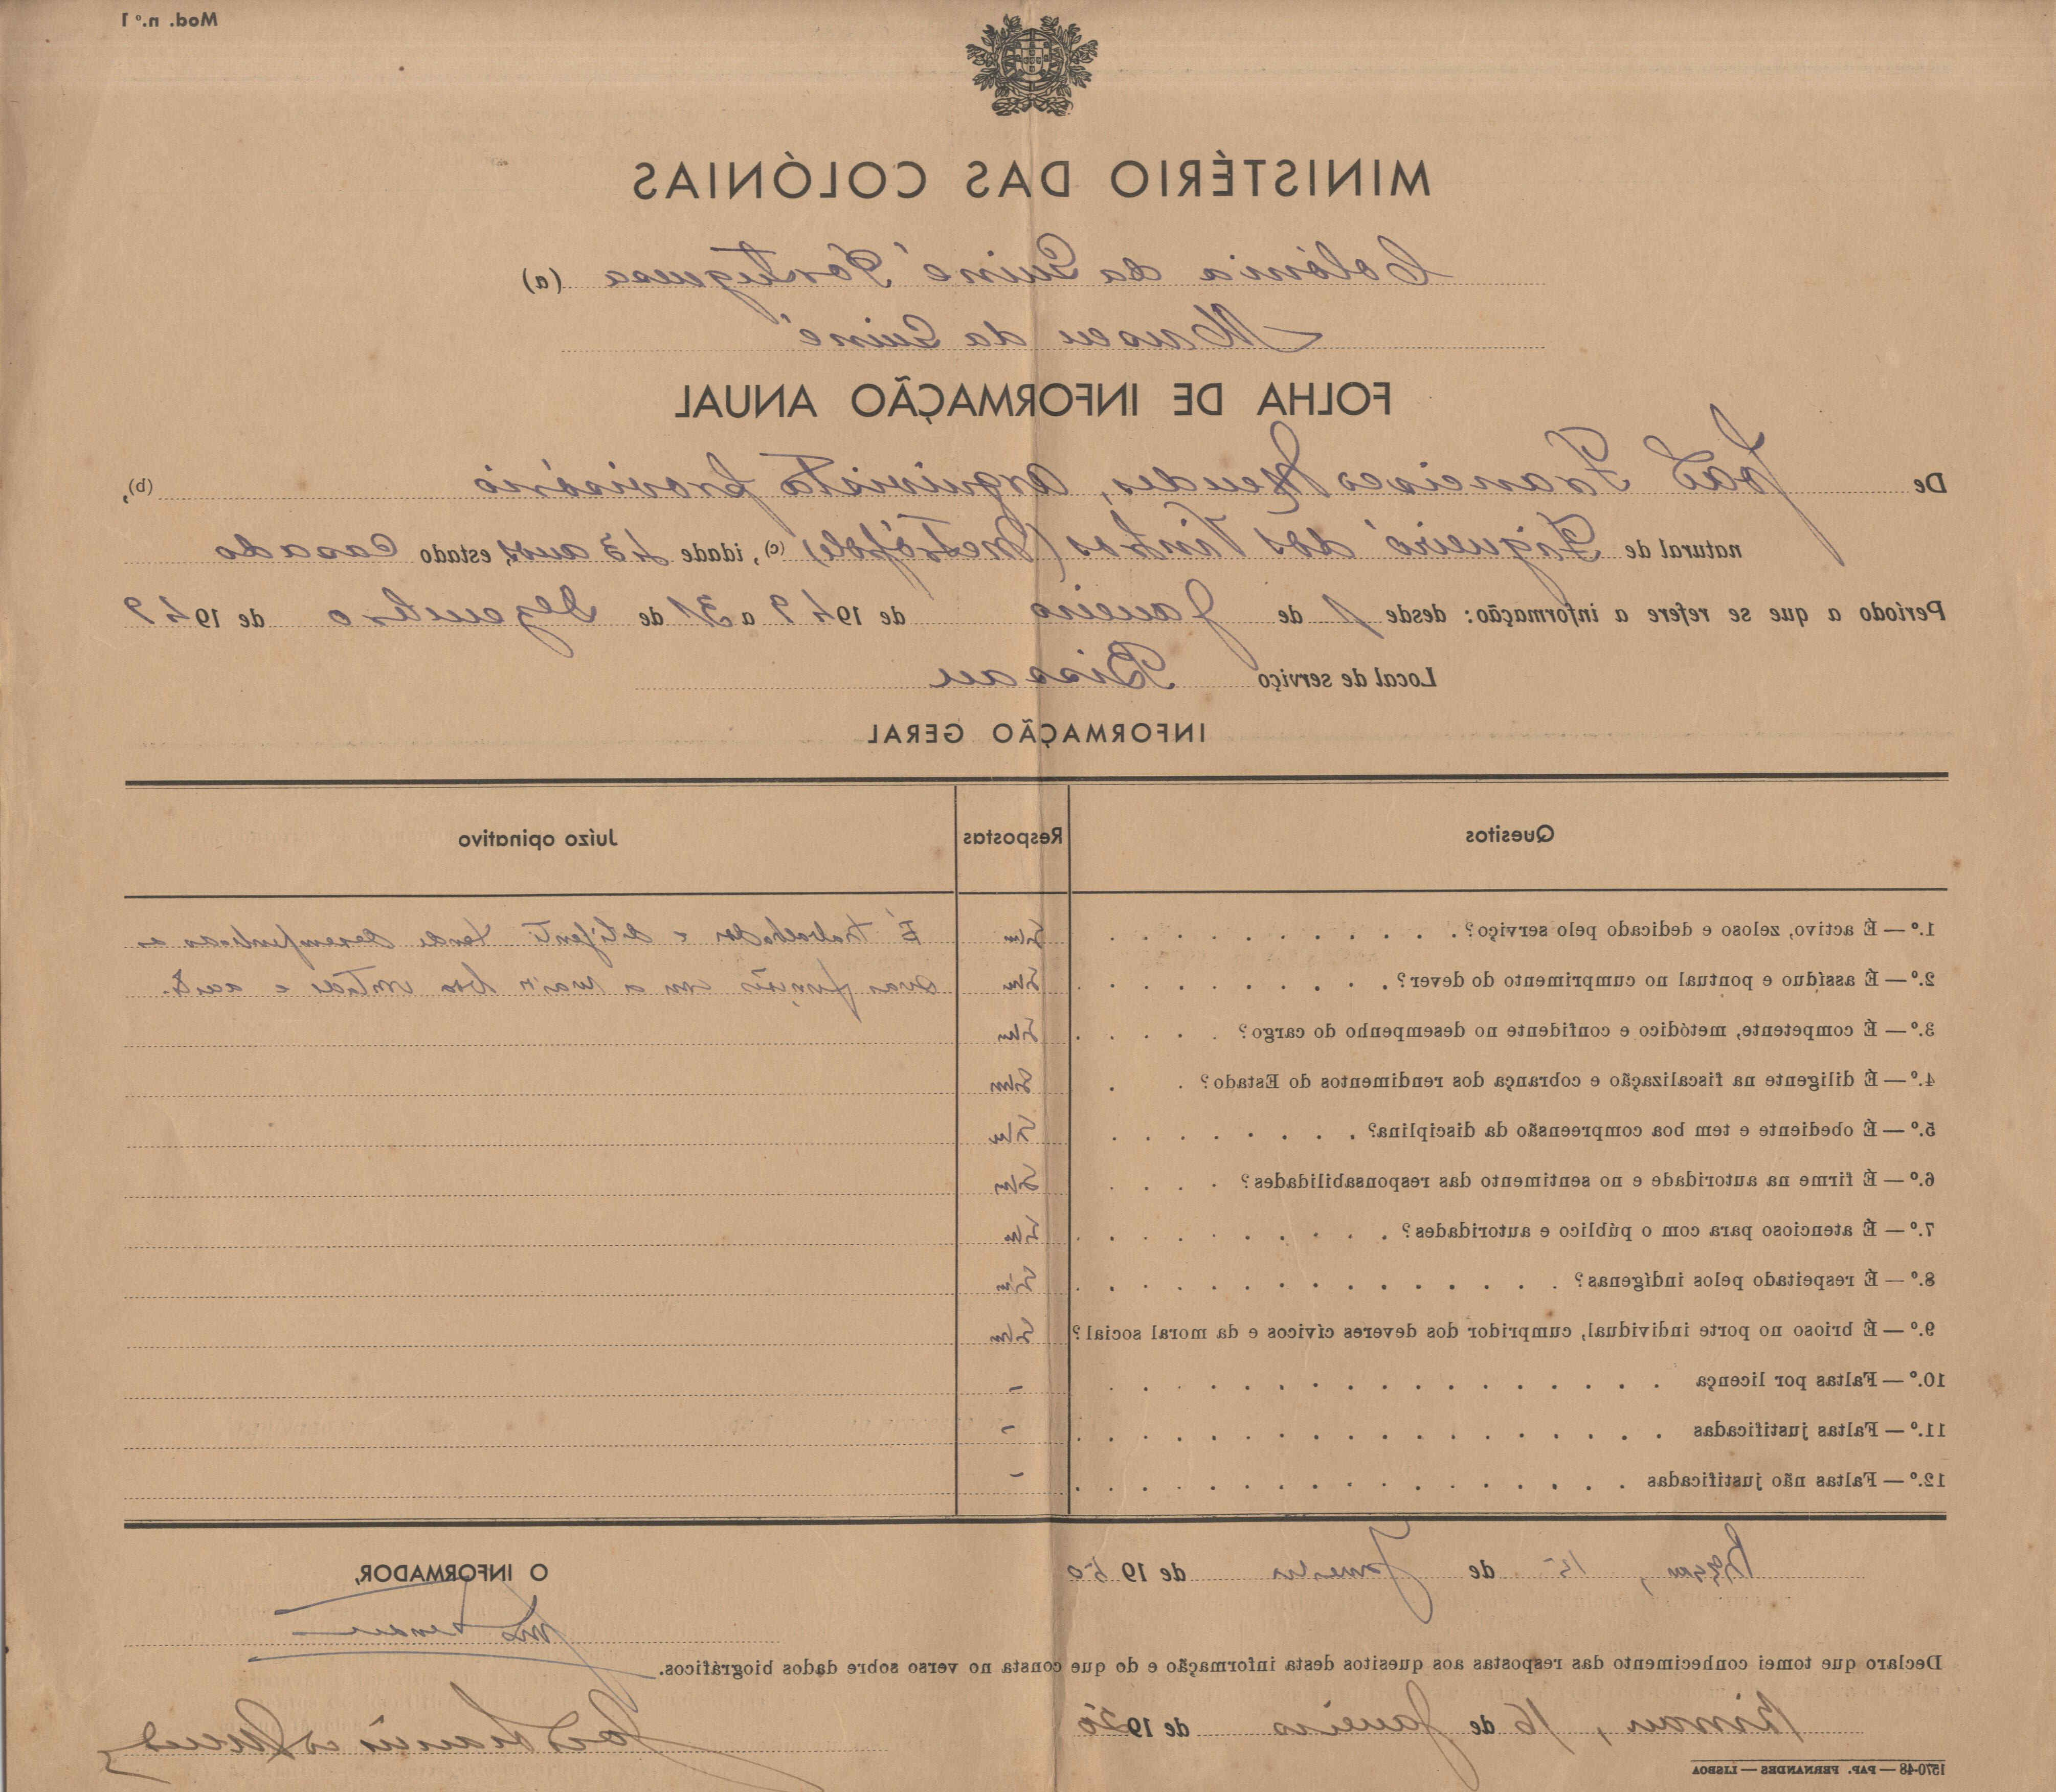 Mod. n.º 1
MINISTÉRIO DAS COLÓNIAS
Colónia da Guiné Portuguesa (a)
Museu da Guiné
FOLHA DE INFORMAÇÃO ANUAL
De José Francisco Mendes, arquivista provisório (b),
natural de Figueiró dos Vinhos (Metrópole) (c), idade 43 anos, estado Casado
Período a que se refere a informação: desde 1 de Janeiro de 1949 a 31 de Dezembro de 1949
Local de serviço Bissau
INFORMAÇÃO GERAL
Quesitos Respostas Juízo opinativo
1.º — É activo, zeloso e dedicado pelo serviço? Sim É trabalhador e diligente tendo desempenhado as
2.º — É assíduo e pontual no cumprimento do dever? Sim suas funções com a maior boa vontade e
3.º — É competente, metódico e confidente no desempenho do cargo? Sim
4.º — É diligente na fiscalização e cobrança dos rendimentos do Estado? Sim
5.º — É obediente e tem boa compreensão da disciplina? Sim
6.º — É firme na autoridade e no sentimento das responsabilidades? Sim
7.º — É atencioso para com o público e autoridades? Sim
8.º — É respeitado pelos indígenas? Sim
9.º — É brioso no porte individual, cumpridor dos deveres cívicos e da moral social? Sim
10.º — Faltas por licença -
11.º — Faltas justificadas -
12.º — Faltas não justificadas -
Bissau, 15 de Janeiro de 1950
O INFORMADOR,
Declaro que tomei conhecimento das respostas aos quesitos desta informação e do que consta no verso sobre dados biográficos.
Bissau, 16 de Janeiro de 1950
José Francisco Mendes
1570-48 — PAP. FERNANDES — LISBOA